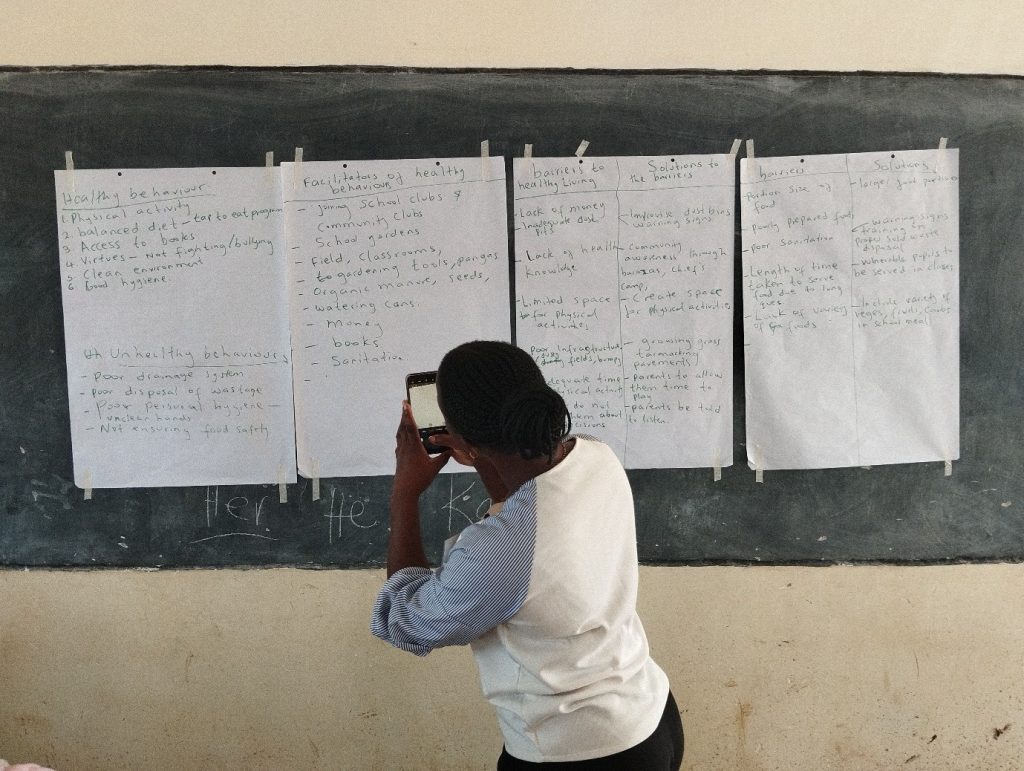 Healthy behaviour.
1. Physical activity
2. balanced diet - tar to eat program
3. Access to books
4. Virtues - Not fighting/bullying
5 Clean environment
6 Good hygiene.
Unhealthy behaviours
- Poor drainage system
- Poor disposal of wastage
- Poor personal hygiene -
unclean hands
- Not ensuring food safety
Facilitators of healthy
behaviours
- Joining School clubs &
Community clubs
- School gardens
- Field, classrooms,
- gardening tools, pangas
- Organic manure, seeds,
- watering cans.
- Money
- books
- Sanitation
-
barriers to
healthy Living
- Lack of money
- Inadequate dust
pits
- Lack of health
knowledge
- Limited space
for physical
activities
Poor Infrastructure
fields, bumpy
adequate time
physical activit
do not
them about
decisions
Solutions to
the barriers
- Improvise dust bins
warning signs
- community
awareness through
barazas, chief's
camp,
- Create space
for physical activities
- growing grass
tarmacking
pavements
- parents to allow
them time to
play
- parents be told
to listen.
barriers
- Portion size of
food
- poorly prepared food,
- poor sanitation
- Length of time
taken to serve
food due to long
ques
- Lack of variety
of foods
-
Solutions
- larger food portions
- warning signs
training on
proper solid waste
disposal
- vulnerable pupils to
be served in classes
- Include variety of
veges, fruits, carbs
in school meal
Her He Ka